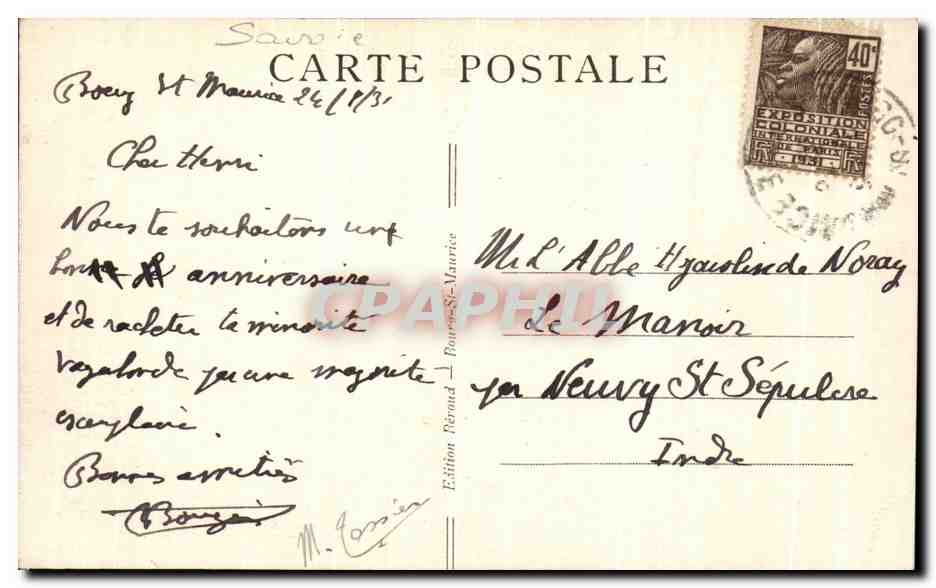 Savoie
CARTE POSTALE
Bourg St Maurice 24/8/31
Cher Henri
Nous te souhaitons un
bon anniversaire
et de racheter ta minorité
vagabonde par une majorité
exemplaire.
Bonnes amitiés
M. Tessier
Edition Béroud — Bourg-St-Maurice
40c
POSTES
EXPOSITION
COLONIALE
INTERNATIONALE
DE PARIS
RF 1931 RF
Mr L'Abbé Hyacolinde Noray
Le Manoir
par Neuvy St Sépulcre
Indre
CPAPHIL